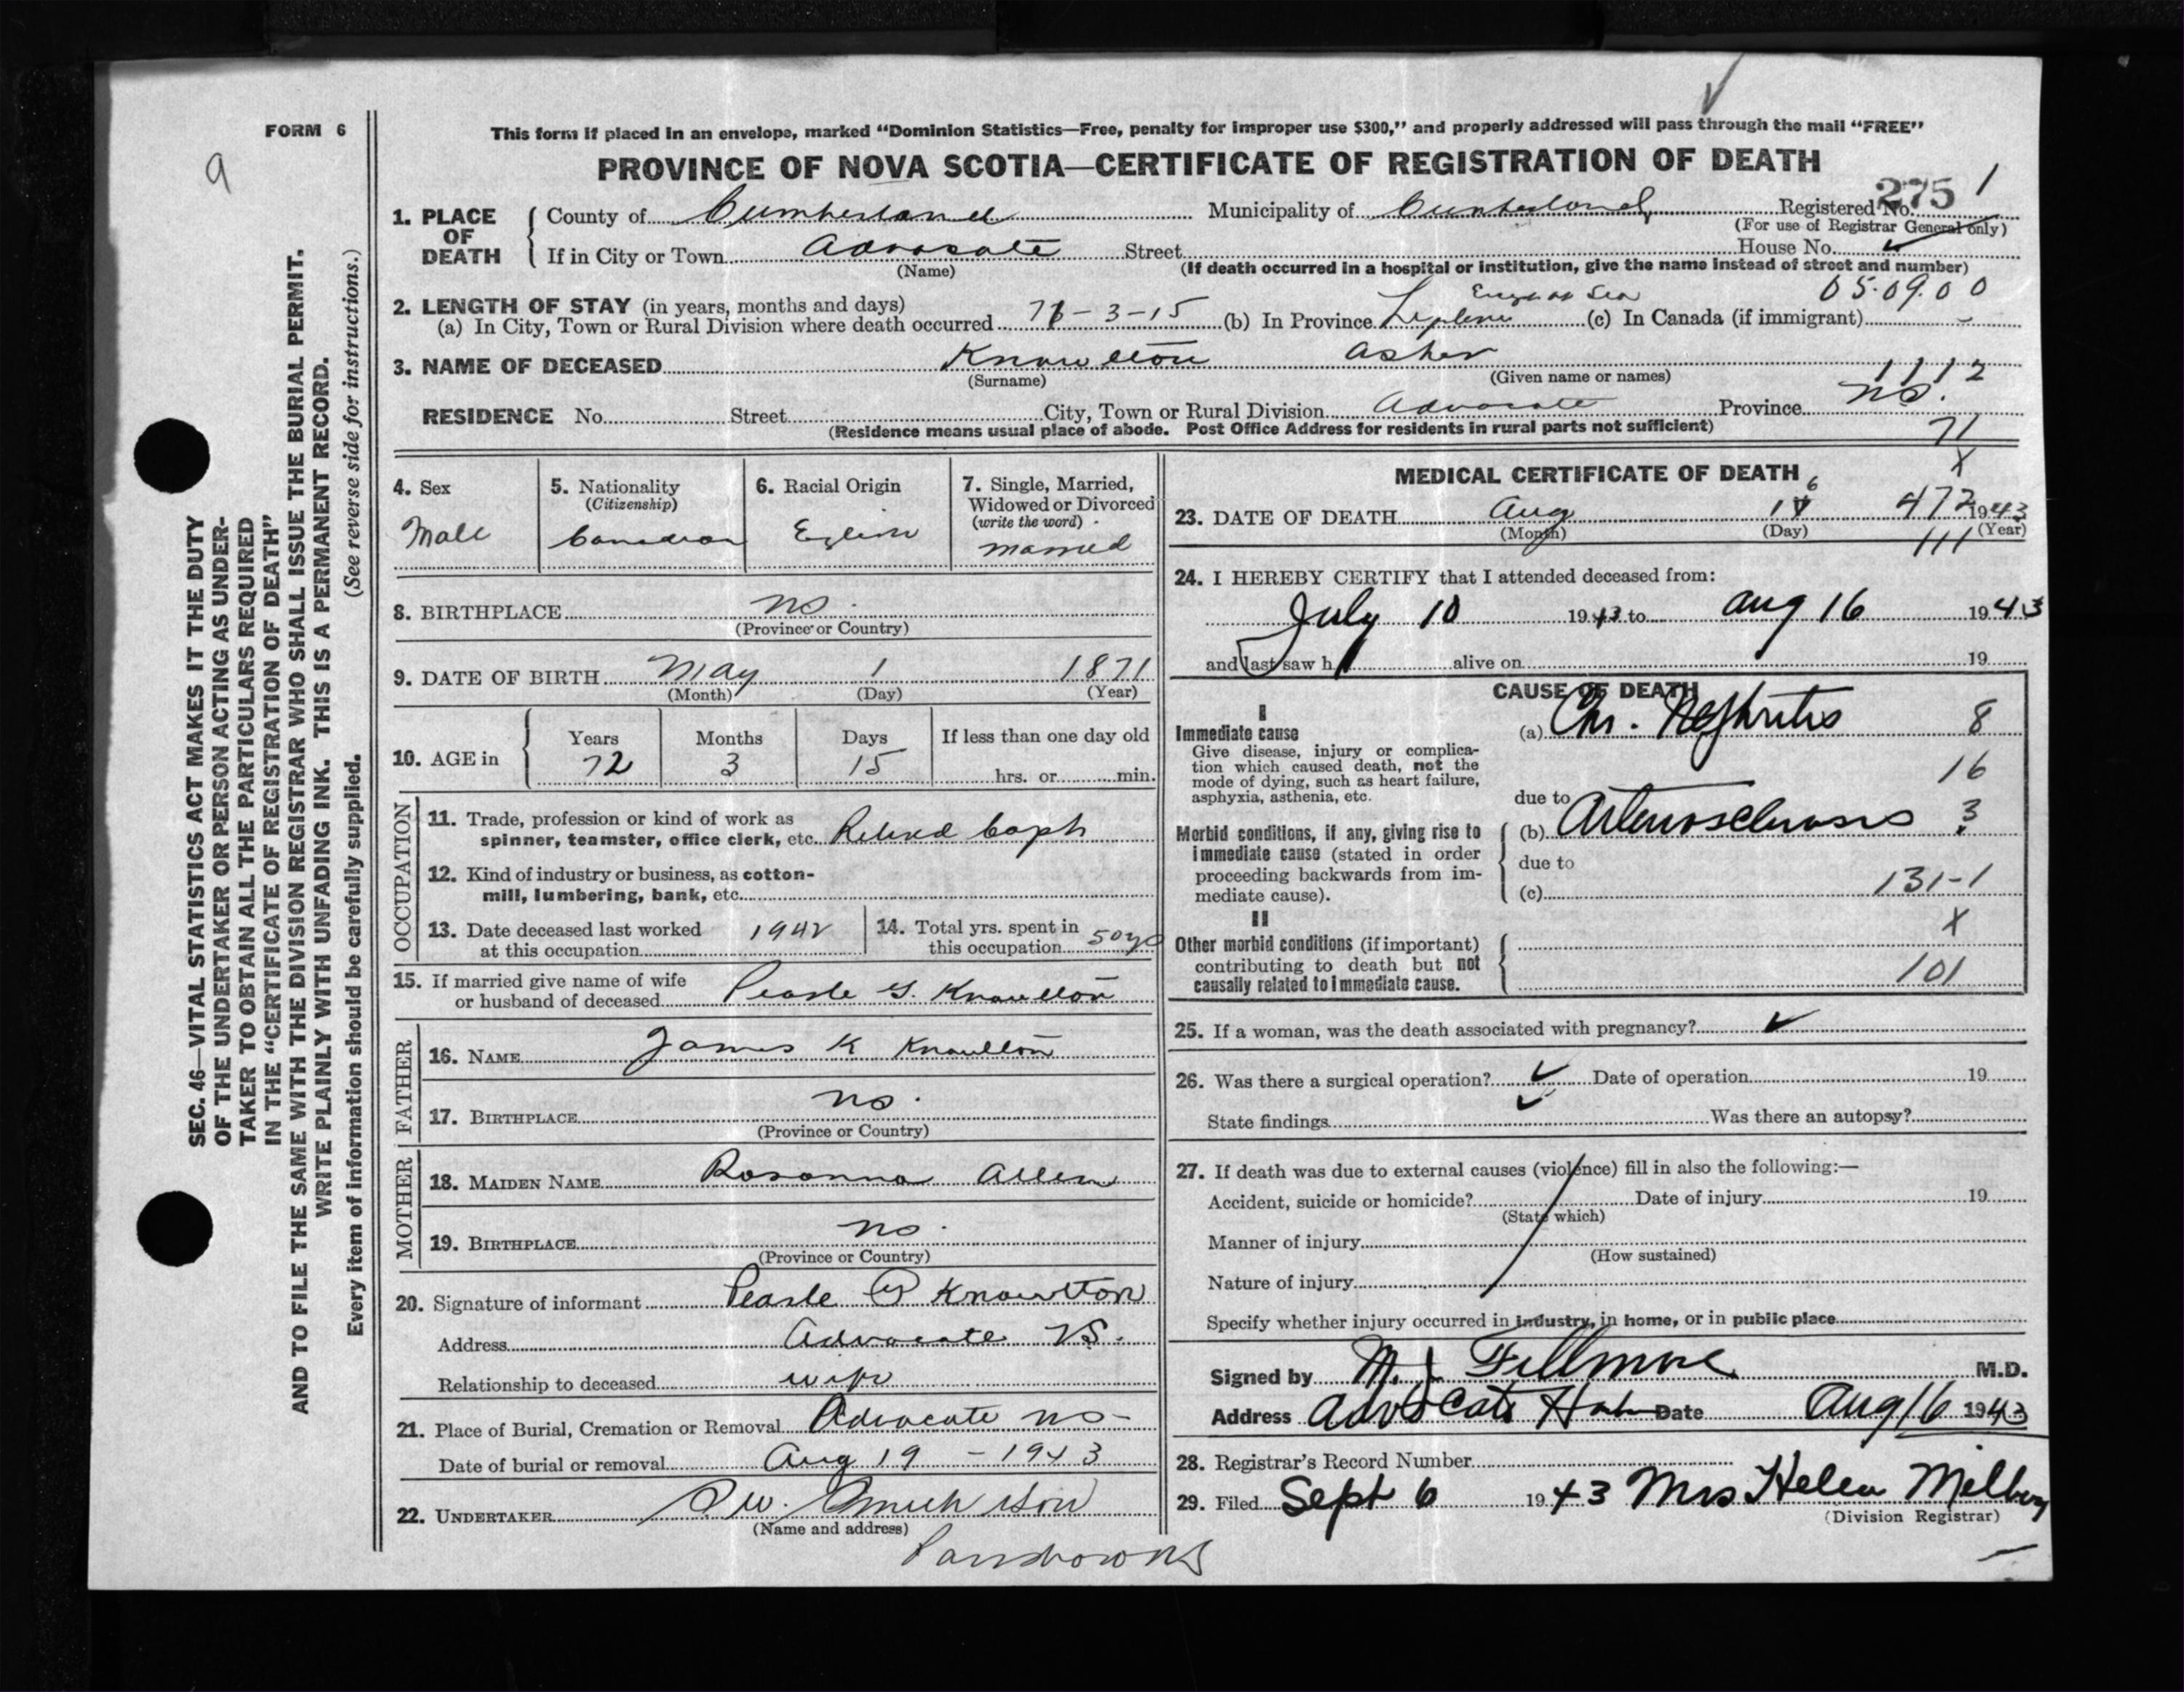 FORM 6
9
This form if placed in an envelope, marked "Dominion Statistics—Free, penalty for improper use $300," and properly addressed will pass through the mail "FREE"
PROVINCE OF NOVA SCOTIA—CERTIFICATE OF REGISTRATION OF DEATH
275 1
1. PLACE OF DEATH { County of Cumberland Municipality of Cumberland Registered No.
(For use of Registrar General only)
If in City or Town Advocate Street House No.
(Name) (If death occurred in a hospital or institution, give the name instead of street and number)
2. LENGTH OF STAY (in years, months and days) Except at Sea 05.09.00
(a) In City, Town or Rural Division where death occurred 71-3-15 (b) In Province Lifetime (c) In Canada (if immigrant) -
3. NAME OF DECEASED Knowlton Asher
(Surname) (Given name or names) 1112
RESIDENCE No. Street City, Town or Rural Division Advocate Province NS.
(Residence means usual place of abode. Post Office Address for residents in rural parts not sufficient) 71
4. Sex 5. Nationality (Citizenship) 6. Racial Origin 7. Single, Married, Widowed or Divorced (write the word)
Male Canadian English Married
8. BIRTHPLACE NS.
(Province or Country)
9. DATE OF BIRTH May 1 1871
(Month) (Day) (Year)
10. AGE in { Years Months Days If less than one day old
72 3 15 hrs. or min.
OCCUPATION
11. Trade, profession or kind of work as
spinner, teamster, office clerk, etc. Retired Capt
12. Kind of industry or business, as cotton-
mill, lumbering, bank, etc.
13. Date deceased last worked at this occupation 1942 14. Total yrs. spent in this occupation 50 yrs
15. If married give name of wife
or husband of deceased Pearle G. Knowlton
FATHER
16. NAME James K Knowlton
17. BIRTHPLACE NS.
(Province or Country)
MOTHER
18. MAIDEN NAME Rosanna Allen
19. BIRTHPLACE NS.
(Province or Country)
20. Signature of informant Pearle G Knowlton
Address Advocate NS.
Relationship to deceased wife
21. Place of Burial, Cremation or Removal Advocate NS-
Date of burial or removal Aug 19 - 1943
22. UNDERTAKER Smith
(Name and address)
Parrsboro NS
MEDICAL CERTIFICATE OF DEATH
X
23. DATE OF DEATH Aug 16 472 1943
(Month) (Day) (Year)
111
24. I HEREBY CERTIFY that I attended deceased from:
July 10 1943 to Aug 16 1943
and last saw h alive on 19
CAUSE OF DEATH
I
Immediate cause (a) Chr. Nephritis 8
Give disease, injury or complica-
tion which caused death, not the
mode of dying, such as heart failure,
asphyxia, asthenia, etc.
16
due to
Morbid conditions, if any, giving rise to { (b) Arteriosclerosis 3
immediate cause (stated in order
proceeding backwards from im-
mediate cause).
due to
(c) 131-1
II
X
Other morbid conditions (if important)
contributing to death but not
causally related to immediate cause. 101
25. If a woman, was the death associated with pregnancy?
26. Was there a surgical operation? Date of operation 19
State findings Was there an autopsy?
27. If death was due to external causes (violence) fill in also the following:—
Accident, suicide or homicide? Date of injury 19
(State which)
Manner of injury
(How sustained)
Nature of injury
Specify whether injury occurred in industry, in home, or in public place
Signed by M. J Fillmore M.D.
Address Advocate Date Aug 16 1943
28. Registrar's Record Number
29. Filed Sept 6 1943 Mrs Helen
(Division Registrar)
SEC. 46—VITAL STATISTICS ACT MAKES IT THE DUTY
OF THE UNDERTAKER OR PERSON ACTING AS UNDER-
TAKER TO OBTAIN ALL THE PARTICULARS REQUIRED
IN THE "CERTIFICATE OF REGISTRATION OF DEATH"
AND TO FILE THE SAME WITH THE DIVISION REGISTRAR WHO SHALL ISSUE THE BURIAL PERMIT.
WRITE PLAINLY WITH UNFADING INK. THIS IS A PERMANENT RECORD.
Every item of information should be carefully supplied. (See reverse side for instructions.)